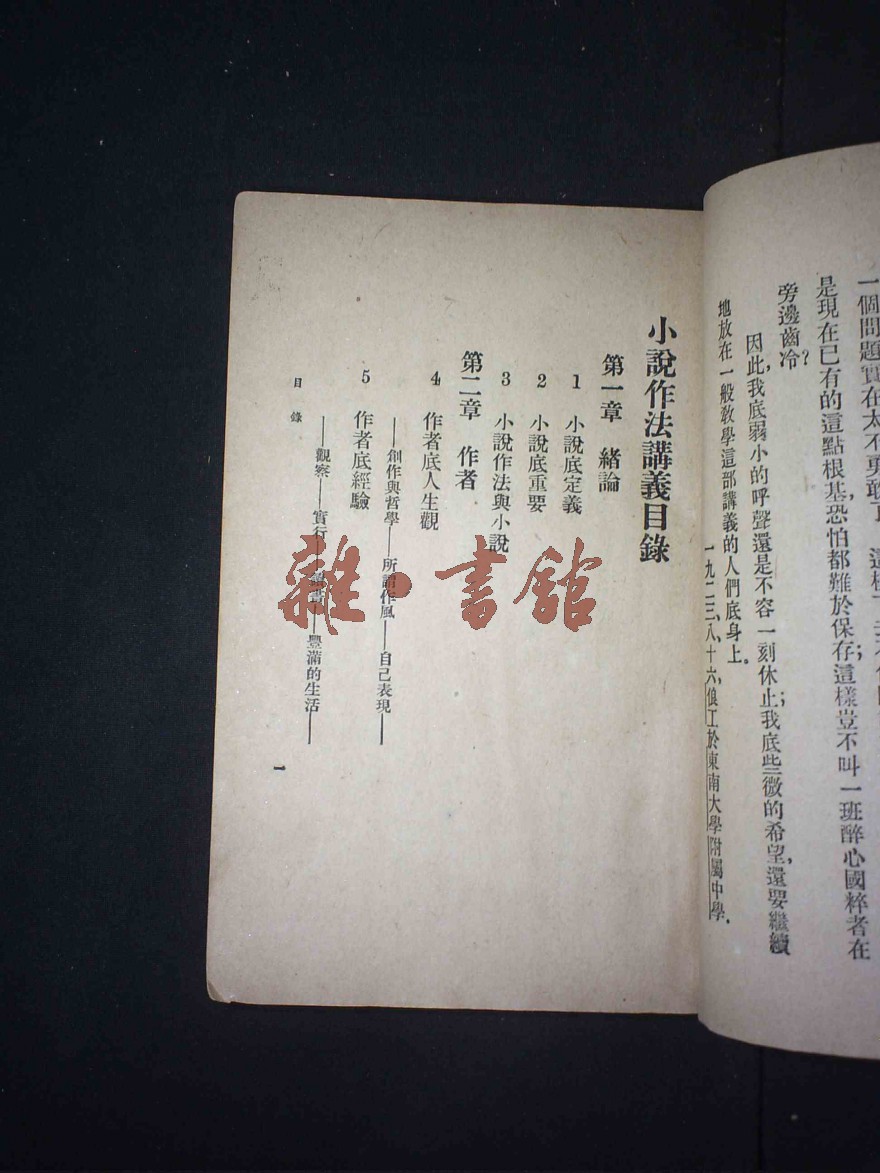 一個問題實在太不勇敢了
是現在已有的這點根基，恐怕都難於保存；這樣豈不叫一班醉心國粹者在
旁邊齒冷？
因此，我底弱小的呼聲還是不容一刻休止；我底些微的希望，還要繼續
地放在一般教學這部講義的人們底身上。
一九二三，八，十六，俍工於東南大學附屬中學。
小說作法講義目錄
第一章　緒論
1　小說底定義
2　小說底重要
3　小說作法與小說
第二章　作者
4　作者底人生觀
——創作與哲學——所謂作風——自己表現——
5　作者底經驗
——觀察——實行——讀書——豐滿的生活——
目錄
一
雜·書館